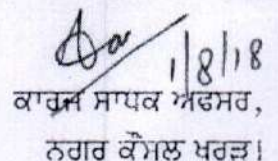 1/8/18
ਕਾਰਜ ਸਾਧਕ ਅਫਸਰ,
ਨਗਰ ਕੌਂਸਲ ਖਰੜ।